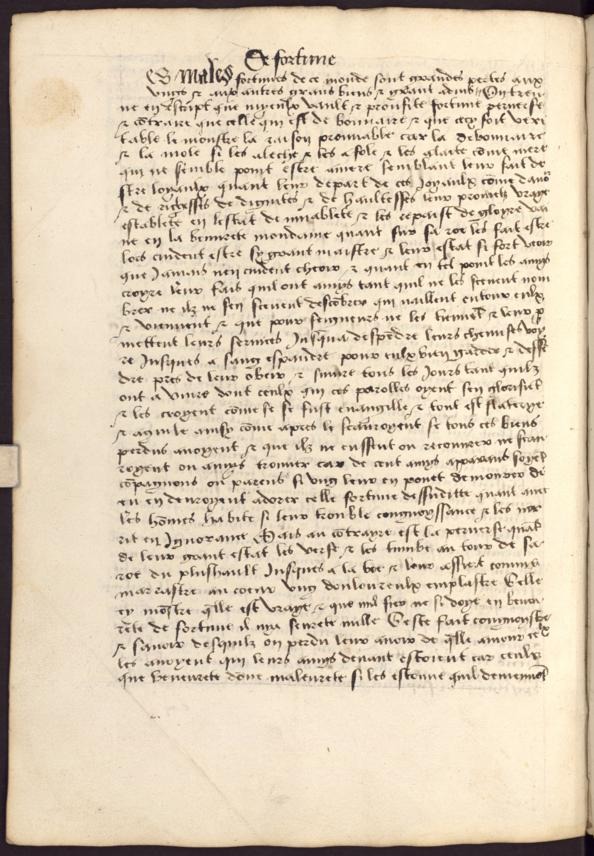 De fortune
Es males fortunes de ce monde sont grandes pertes aux
ungs & aux autres grans biens & grant On treu
ne en escript que myeulx vault & proufite fortune perverse
& contraire que celle qui est de bonnaire & que cecy soit veri
table le monstre la raison prouvable car la debonnaire
& la mole si les aleche & les afole & les glaite come mere
qui ne semble point estre amere semblant leur fait de
stre loyaulx quant leur depart de ces joyaulx come danô
& de richesses de dignites & de haultesses leur promect vraye
establete en lestat de muablete & les repaist de gloyre vai
ne en la beneurte mondaine quant sur sa roe les fait estre
lors cuident estre sy grant maistre & leur estat si fort veoir
que jamais nen cuident cheoir & quant en tel point les a mys
croyre leur fait quil ont amys tant quil ne les scevent nom
brer ne ilz ne sen scevent descôbrer qui naillent entour eulx
& viennent & que pour seigneurs ne les tiennent & leur p
mettent leurs services jusqua despendre leurs chemises voy
re jusques a sang espandre pour eulx bien garder & deffe
dre pres de leur obeir & suivre tous les jours tant quilz
ont a vivre dont ceulx qui ces parolles oyent sen glorifiet
& les croyent come se se fust evangille & tout est flaterye
& aguile ainsy come apres le scauroyent se tous ces biens
perdus avoyent & que ilz ne eussent ou recouvrer ne scau
royent ou amys trouver car de cent amys apparans soyent
côpaignons ou parens si ung leur en povet demourer di
eu en devroyent adorer celle fortune dessuditte quant avec
les hômes habite si leur trouble congnoyssance & les nor
rit en ignorance Mais au côtrayre est la perverse quat
de leur grant estat les verse & les tumbe au tour de sa
roe du plushault jusques a la boe & leur assiert comme
marrastre au coeur ung douloureulx emplastre Celle
cy môstre qlle est vraye & que nul fier ne si doye en beneu
rete de fortune il nya seurete nulle Ceste fait congnoistre
& savoir desquilz on perdu leur avoir de qlle amour ceux
les amoyent qui leurs amys devant estoient car ceulx
que beneurete done maleurete si les estonne quil deviennet